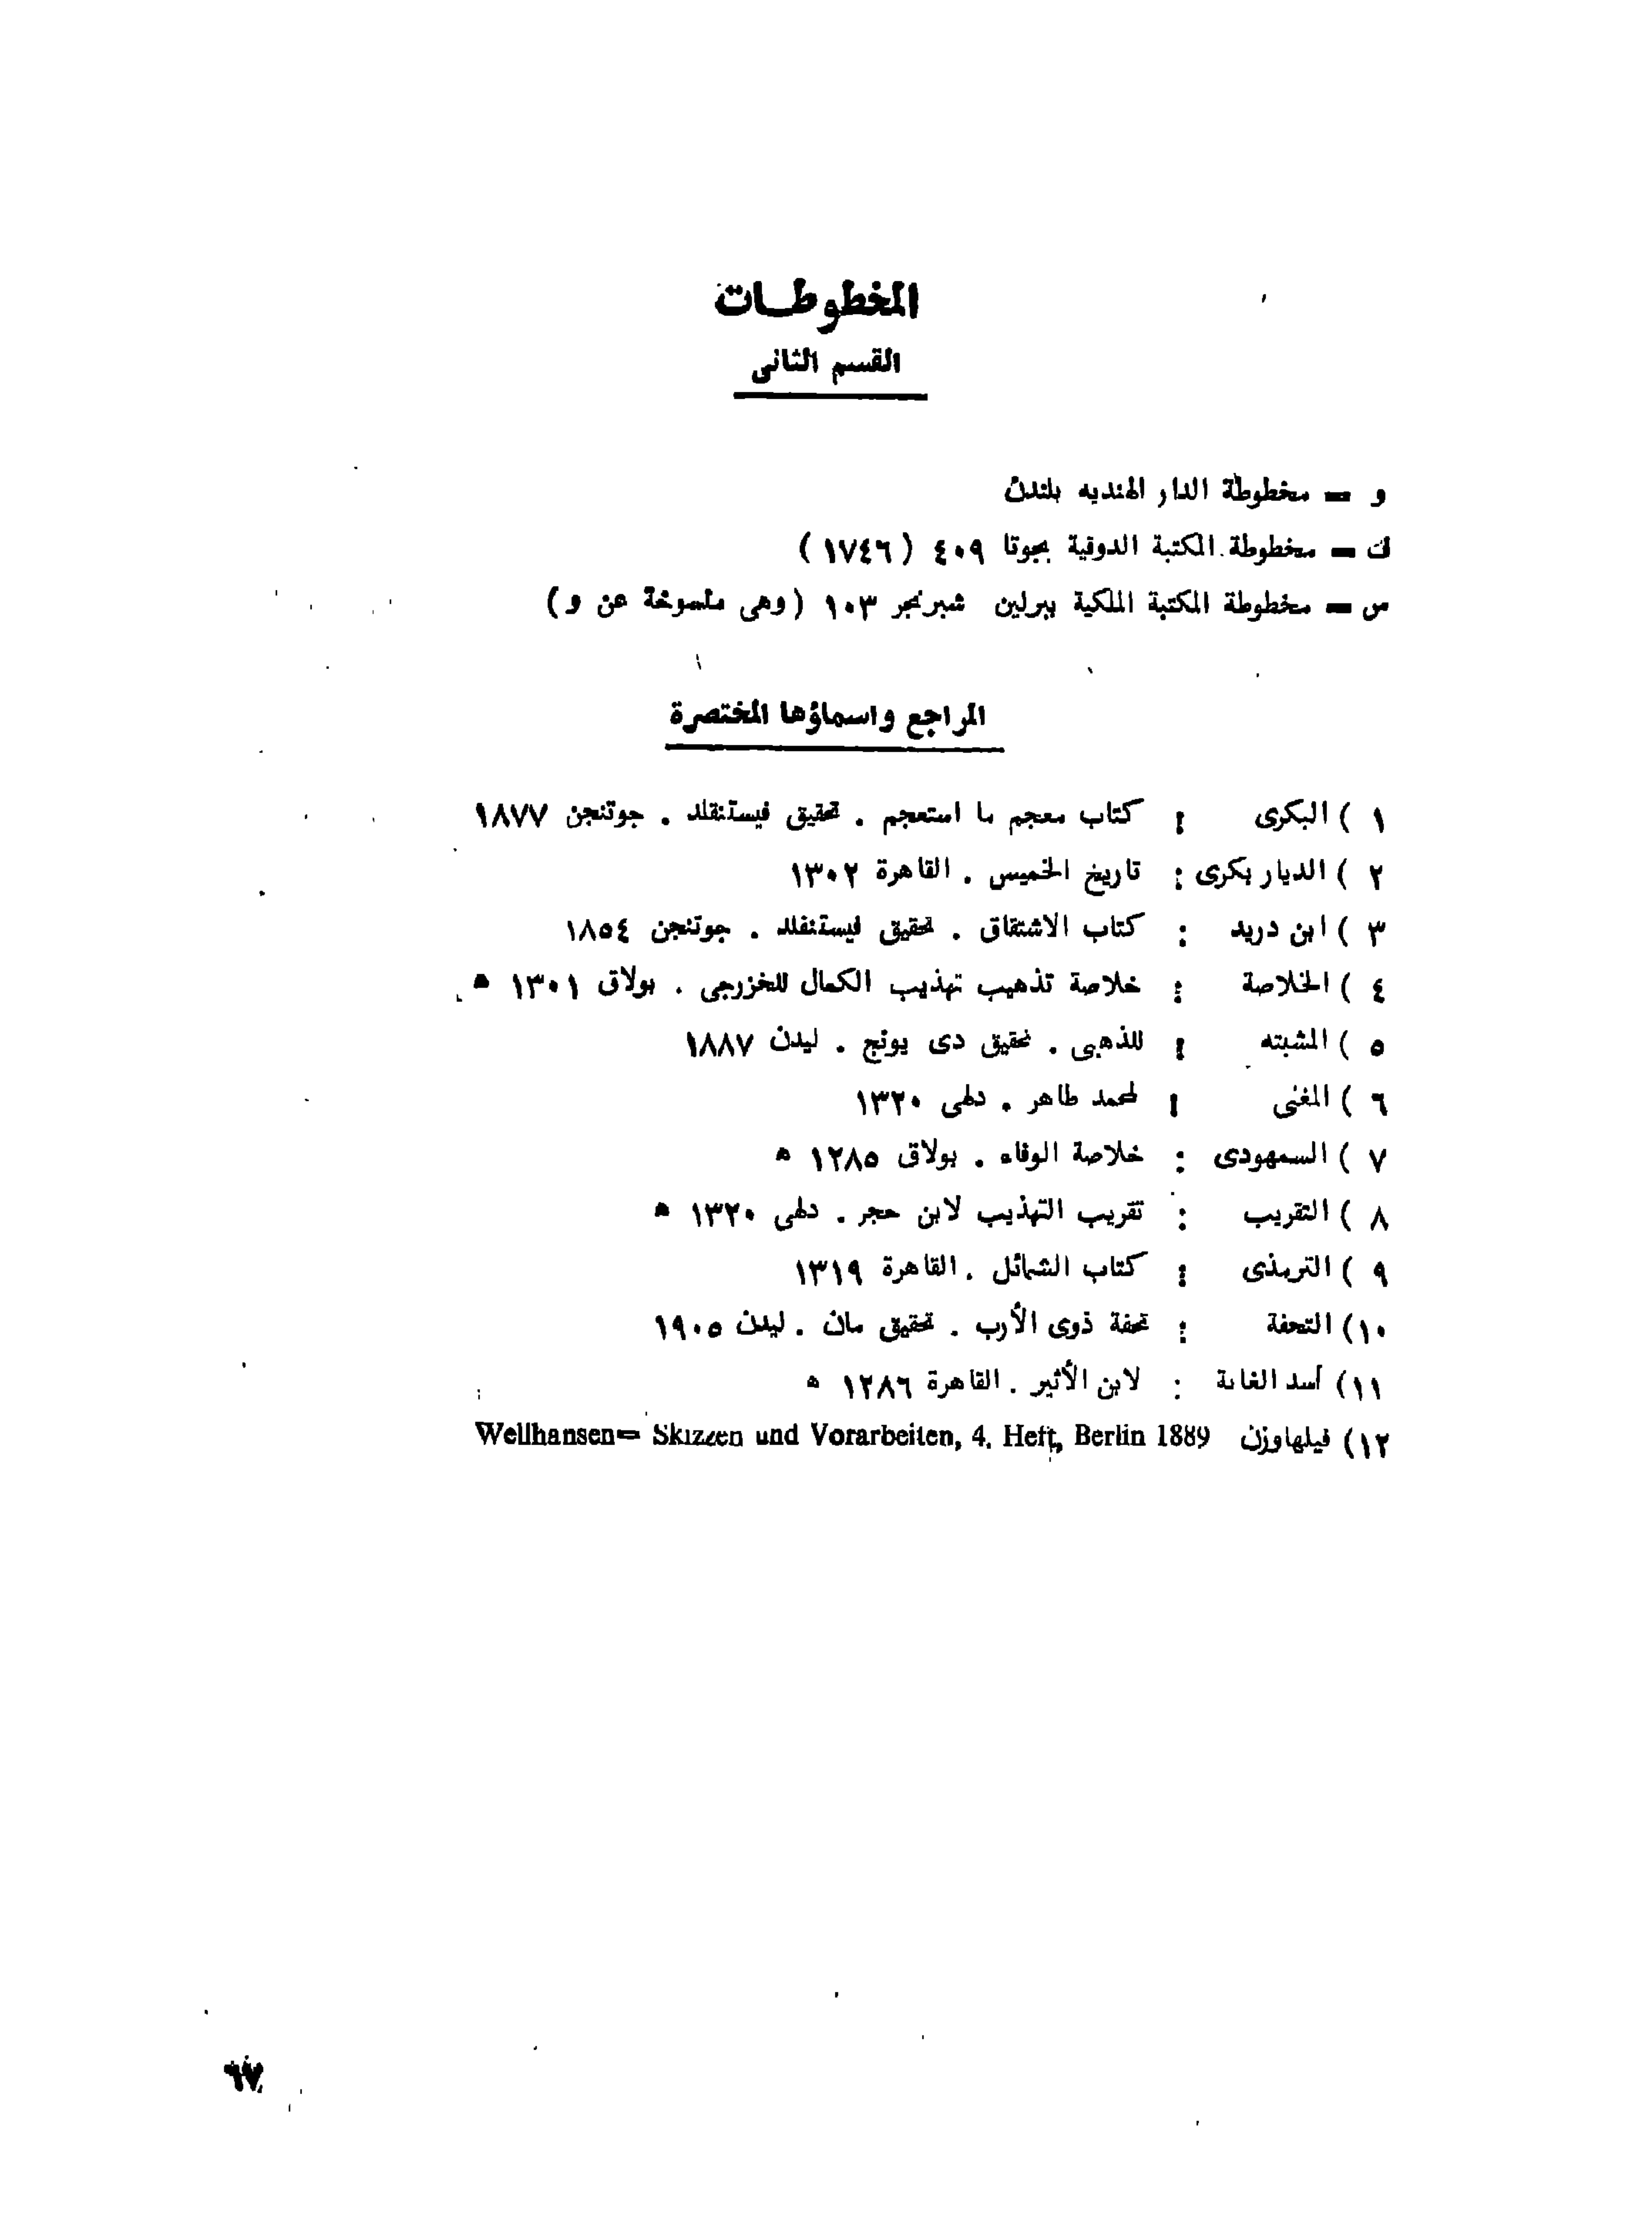 المخطوطات
القسم الثانى
و = مخطوطة الدار الهنديه بلندن
ك = مخطوطة المكتبة الدوقية بجوتا ٤٠٩ ( ١٧٤٦ )
س = مخطوطة المكتبة الملكية ببرلين شبرنجر ١٠٣ ( وهى منسوخة عن و )
المراجع واسماؤها المختصرة
١ ) البكرى : كتاب معجم ما استعجم . تحقيق فيستنفلد . جوتنجن ١٨٧٧
٢ ) الديار بكرى : تاريخ الخميس . القاهرة ١٣٠٢
٣ ) ابن دريد : كتاب الاشتقاق . تحقيق فيستنفلد . جوتنجن ١٨٥٤
٤ ) الخلاصة : خلاصة تذهيب تهذيب الكمال للخزرجى . بولاق ١٣٠١ ه
٥ ) المشبته : للذهبى . تحقيق دى يونج . ليدن ١٨٨٧
٦ ) المغنى : لمحمد طاهر . دلهى ١٣٢٠
٧ ) السمهودى : خلاصة الوفاء . بولاق ١٢٨٥ ه
٨ ) التقريب : تقريب التهذيب لابن حجر . دلهى ١٣٢٠ ه
٩ ) الترمذى : كتاب الشمائل . القاهرة ١٣١٩
١٠) التحفة : تحفة ذوى الأرب . تحقيق مان . ليدن ١٩٠٥
١١) أسد الغابة : لابن الأثير . القاهرة ١٢٨٦ ه
١٢) فيلهاوزن Wellhansen= Skizzen und Vorarbeiten, 4. Heft, Berlin 1889
٦٧